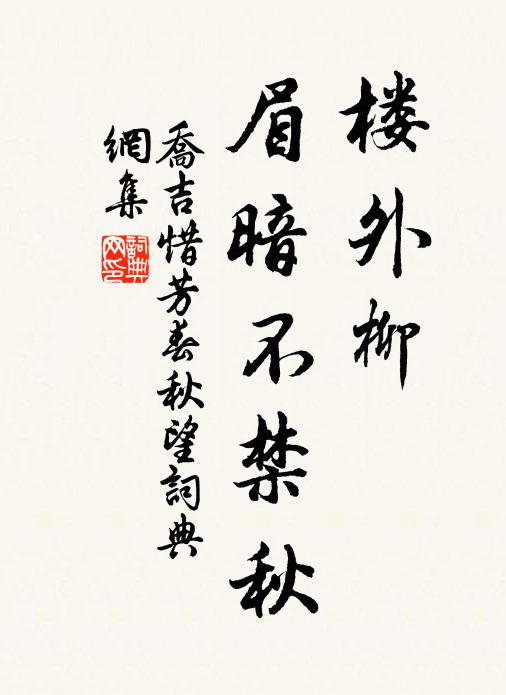 楼外柳
眉暗不禁秋
喬吉惜芳春秋望詞典
網集
詞典网印